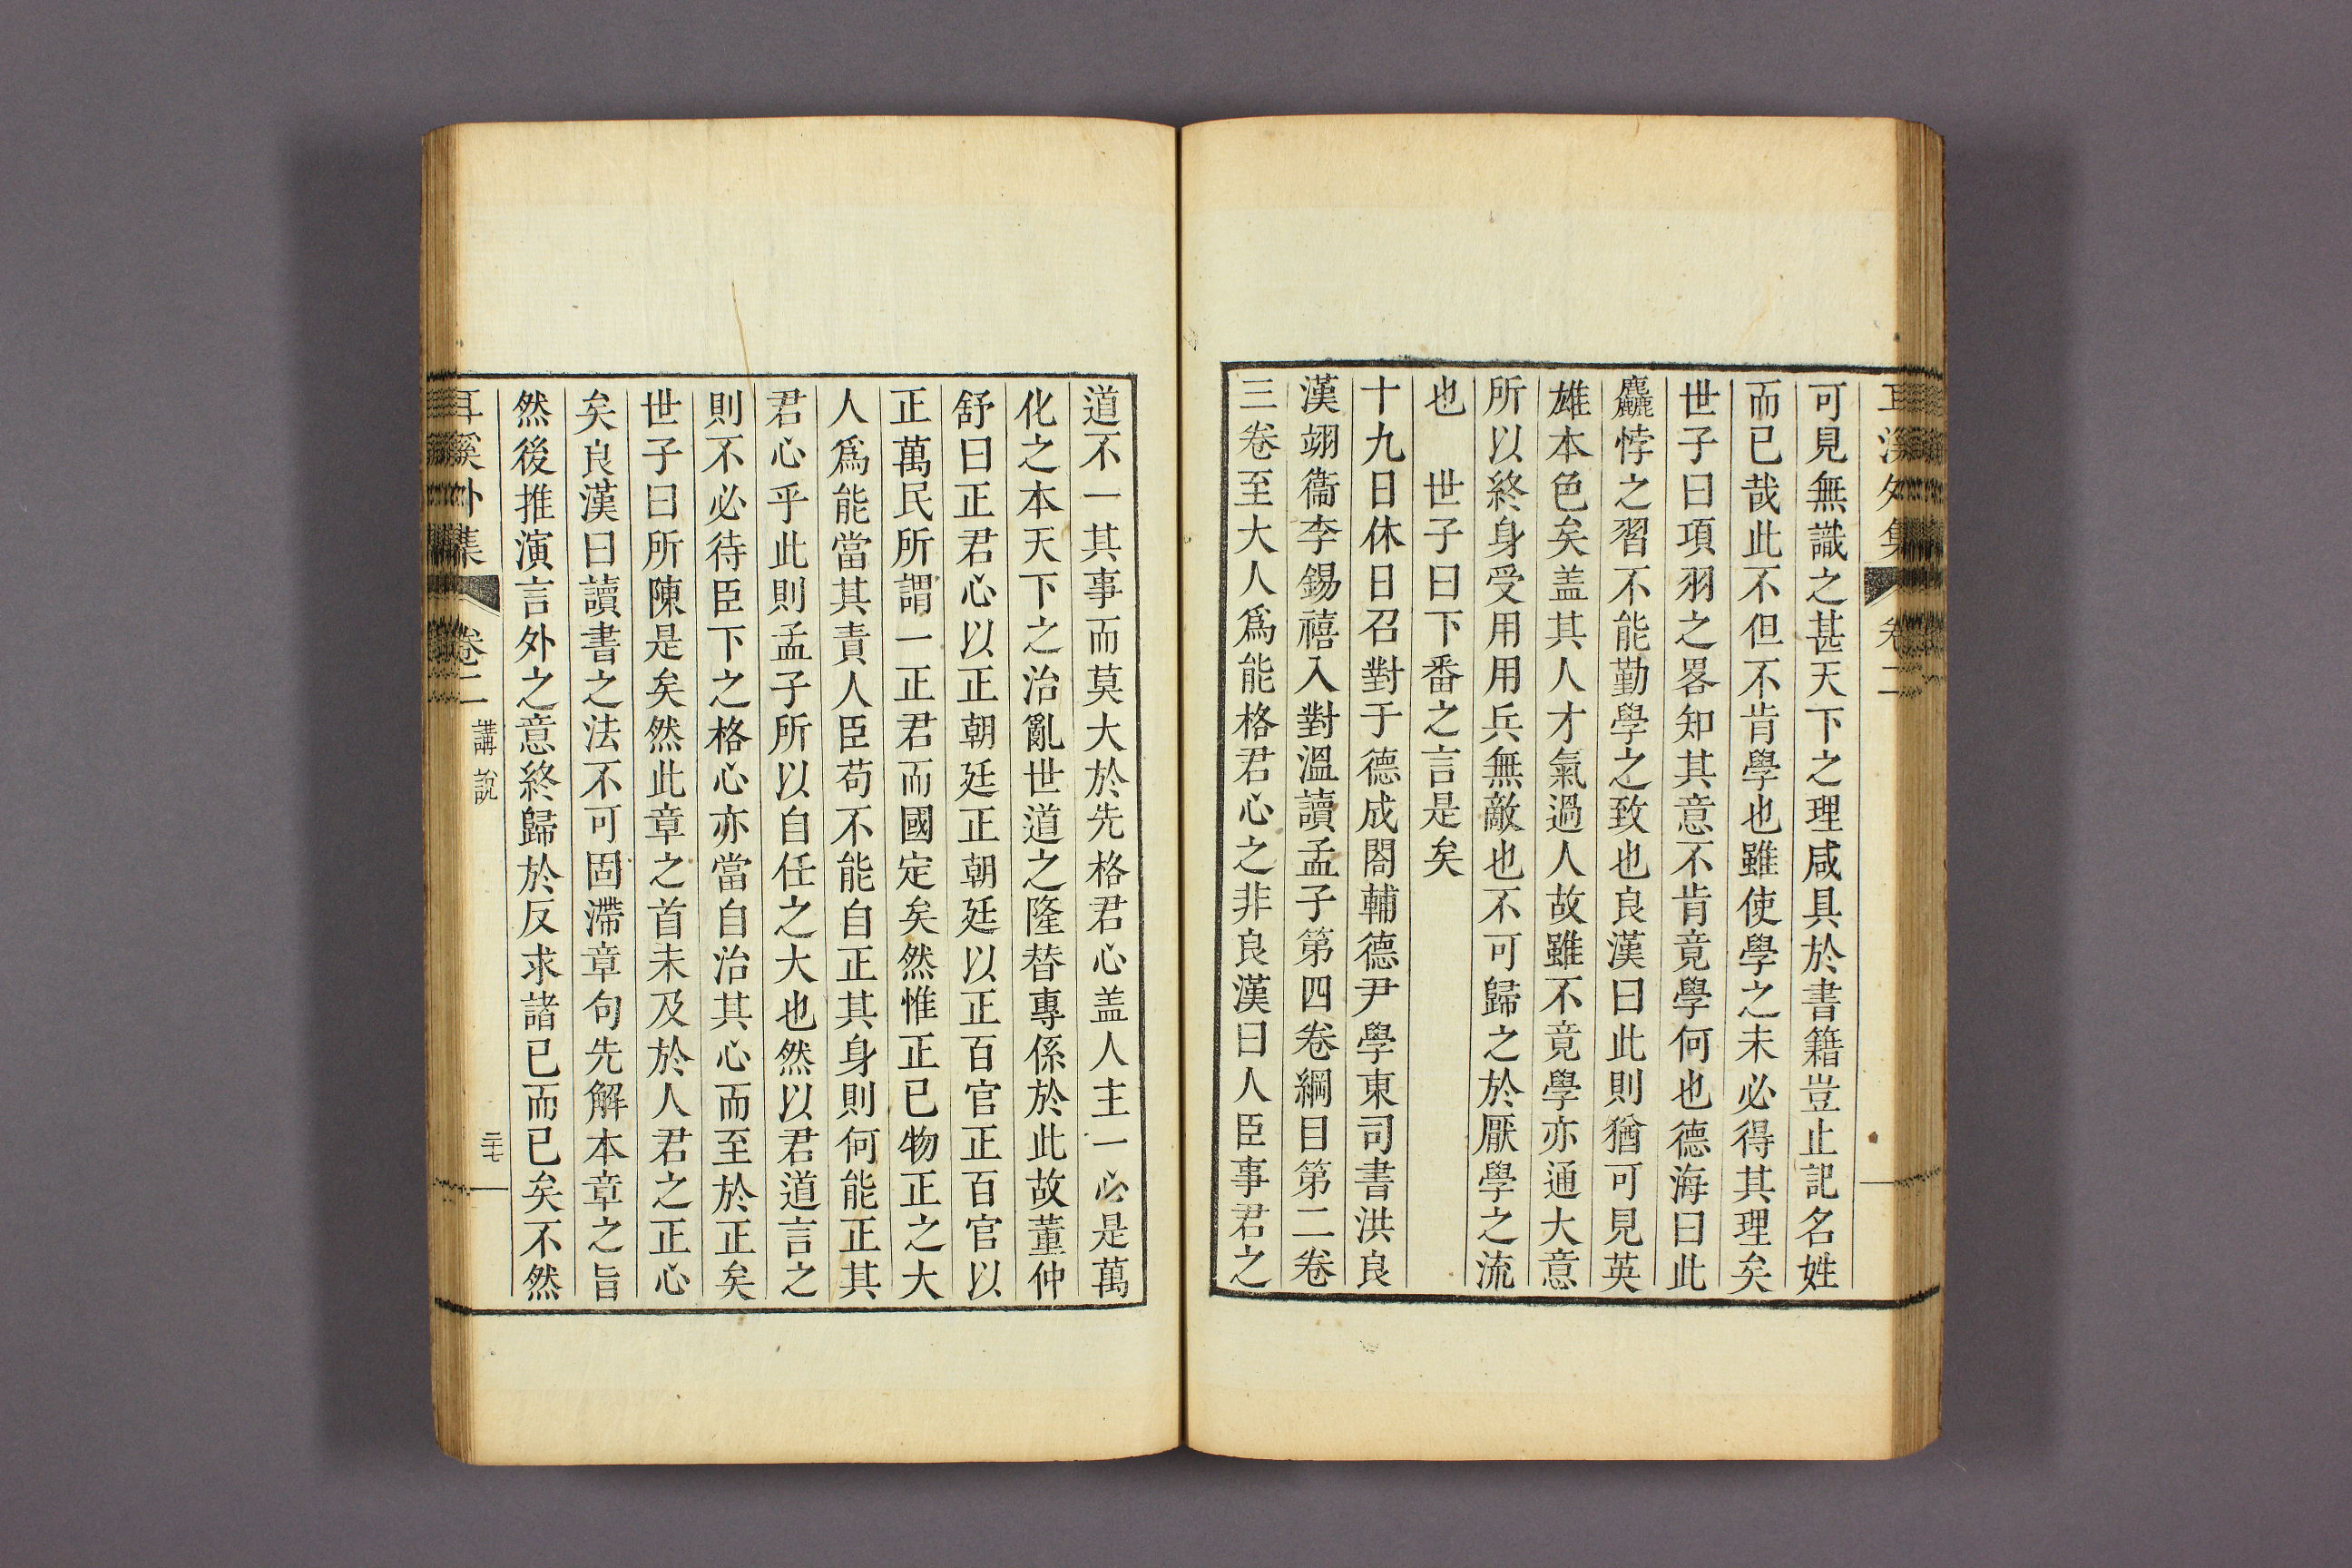 耳溪外集 卷二
可見無識之甚天下之理咸具於書籍豈止記名姓
而已哉此不但不肯學也雖使學之未必得其理矣
世子曰項羽之畧知其意不肯竟學何也德海曰此
麤悖之習不能勤學之致也良漢曰此則猶可見英
雄本色矣盖其人才氣過人故雖不竟學亦通大意
所以終身受用用兵無敵也不可歸之於厭學之流
也 世子曰下番之言是矣
十九日休日召對于德成閤輔德尹學東司書洪良
漢翊衞李錫禧入對溫讀孟子第四卷綱目第二卷
三卷至大人爲能格君心之非良漢曰人臣事君之
道不一其事而莫大於先格君心盖人主一心是萬
化之本天下之治亂世道之隆替專係於此故董仲
舒曰正君心以正朝廷正朝廷以正百官正百官以
正萬民所謂一正君而國定矣然惟正已物正之大
人爲能當其責人臣苟不能自正其身則何能正其
君心乎此則孟子所以自任之大也然以君道言之
則不必待臣下之格心亦當自治其心而至於正矣
世子曰所陳是矣然此章之首未及於人君之正心
矣良漢曰讀書之法不可固滯章句先解本章之旨
然後推演言外之意終歸於反求諸已而已矣不然
耳溪外集 卷二 講說 二十七